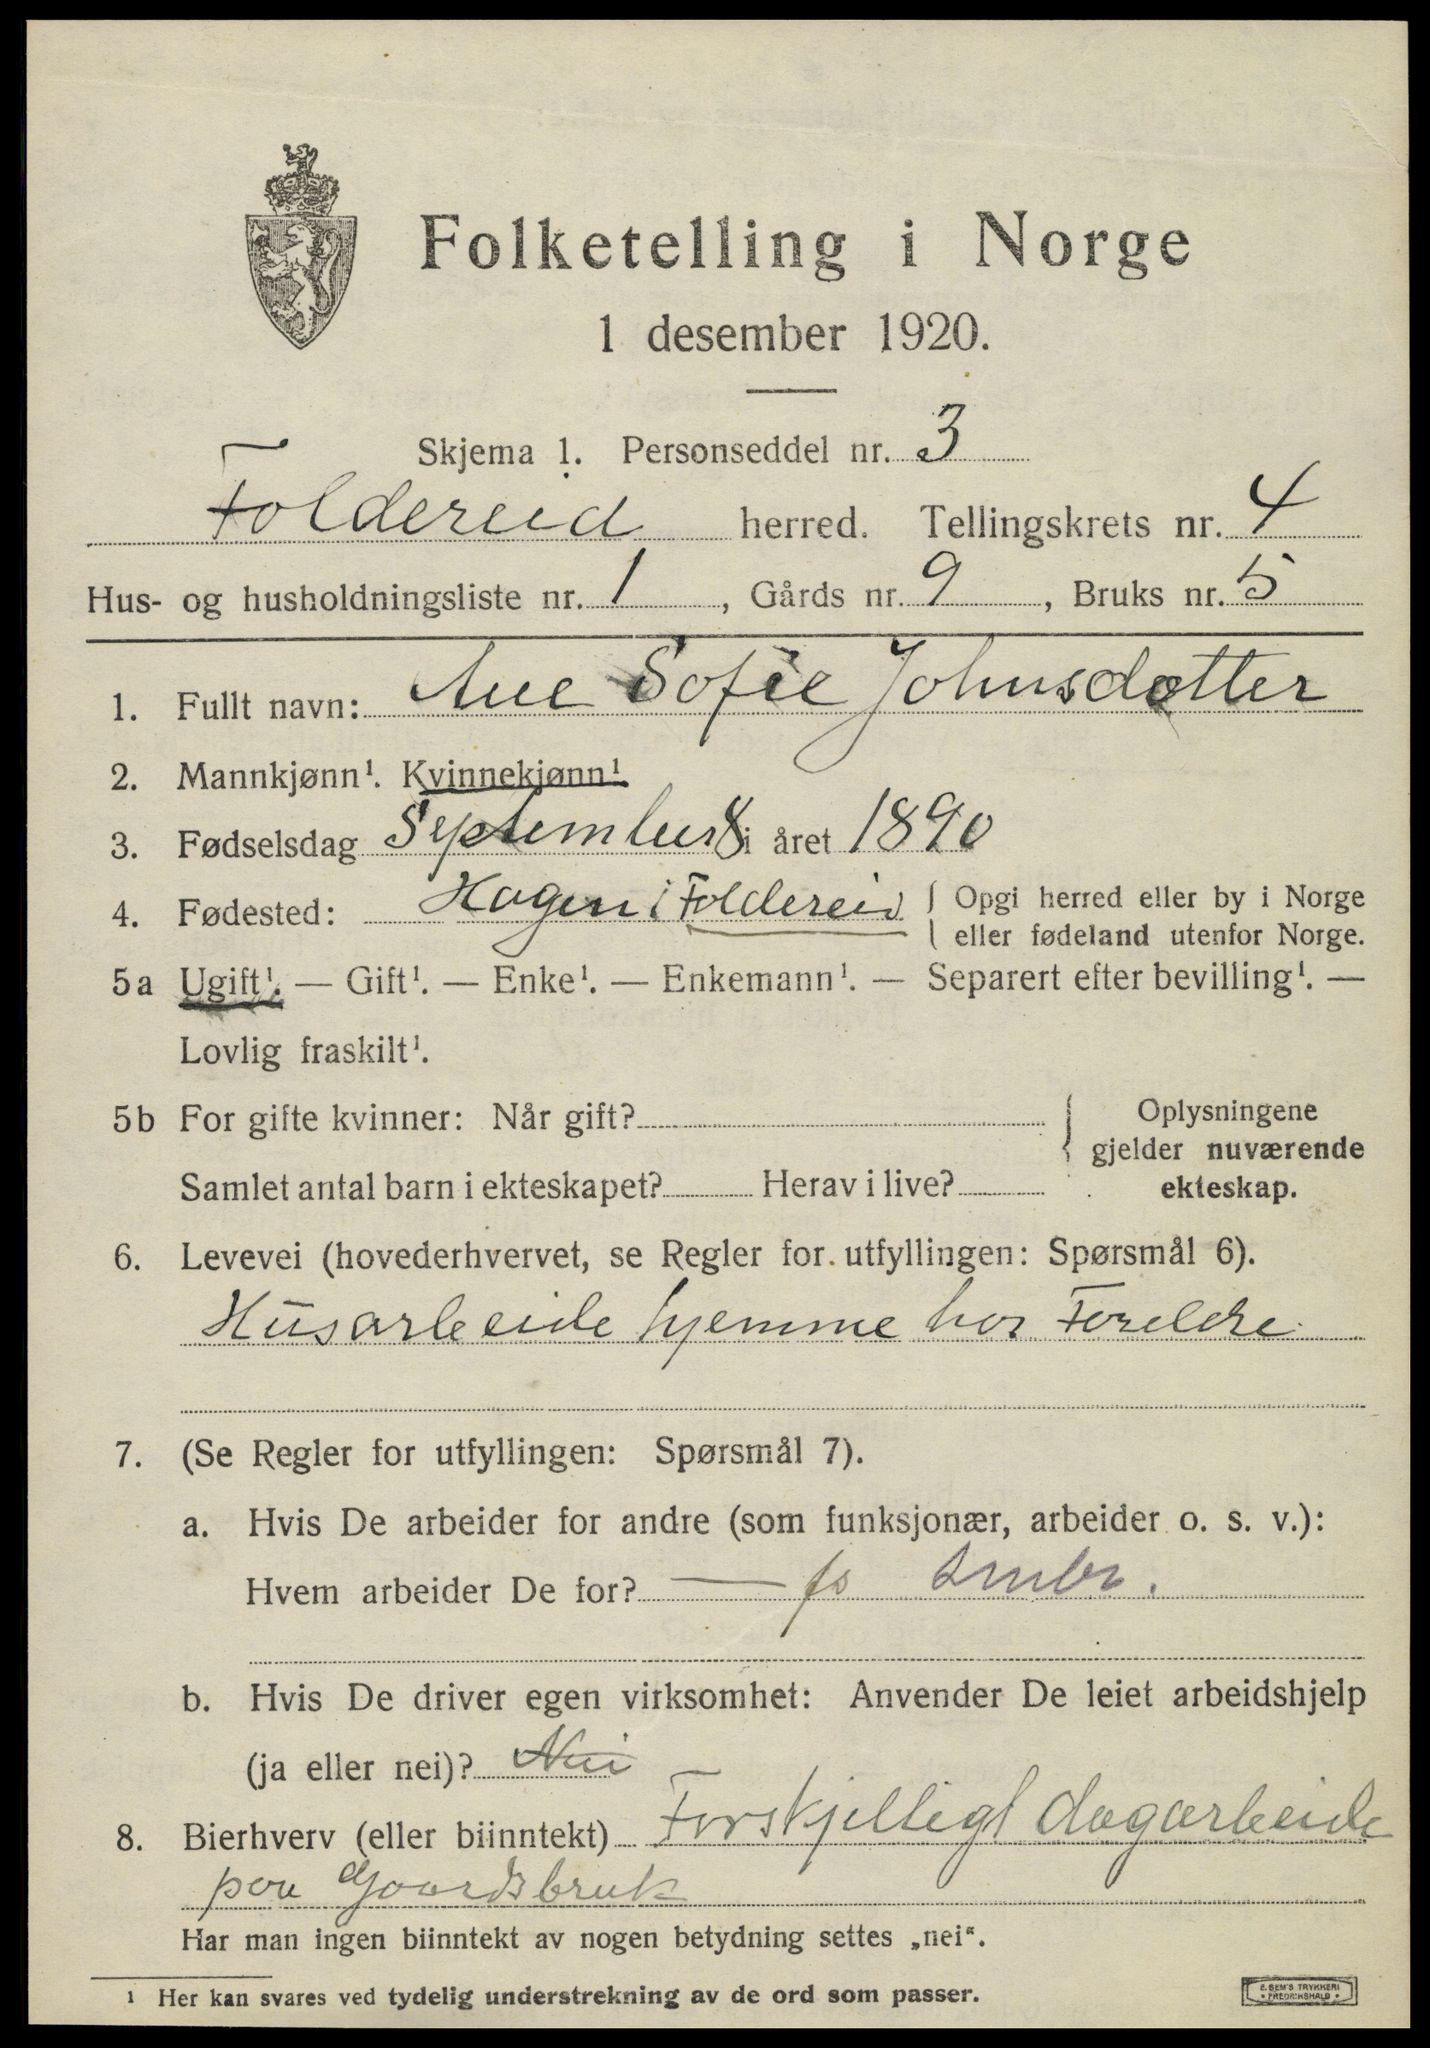 Folketelling i Norge
1 desember 1920.
Skjema 1. Personseddel nr. 3
Foldereid herred. Tellingskrets nr. 4
Hus- og husholdningsliste nr. 1, Gårds nr. 9, Bruks nr. 5
1. Fullt navn: Ane Sofie Johnsdotter
2. Mannkjønn¹. Kvinnekjønn¹
3. Fødselsdag September 8 i året 1890
4. Fødested: Hagen i Foldereid { Opgi herred eller by i Norge
eller fødeland utenfor Norge.
5a Ugift¹. — Gift¹. — Enke¹. — Enkemann¹. — Separert efter bevilling¹. —
Lovlig fraskilt¹.
5b For gifte kvinner: Når gift? { Oplysningene
gjelder nuværende
Samlet antal barn i ekteskapet? Herav i live? ekteskap.
6. Levevei (hovederhvervet, se Regler for utfyllingen: Spørsmål 6).
Husarbeide hjemme hos Foreldre
7. (Se Regler for utfyllingen: Spørsmål 7).
a. Hvis De arbeider for andre (som funksjonær, arbeider o. s. v.):
Hvem arbeider De for? —
b. Hvis De driver egen virksomhet: Anvender De leiet arbeidshjelp
(ja eller nei)? Nei
8. Bierhverv (eller biinntekt) Forskjelligt dagarbeide
paa Gaardsbruk
Har man ingen biinntekt av nogen betydning settes „nei“.
¹ Her kan svares ved tydelig understrekning av de ord som passer.
E. SEM'S TRYKKERI
FREDRIKSHALD